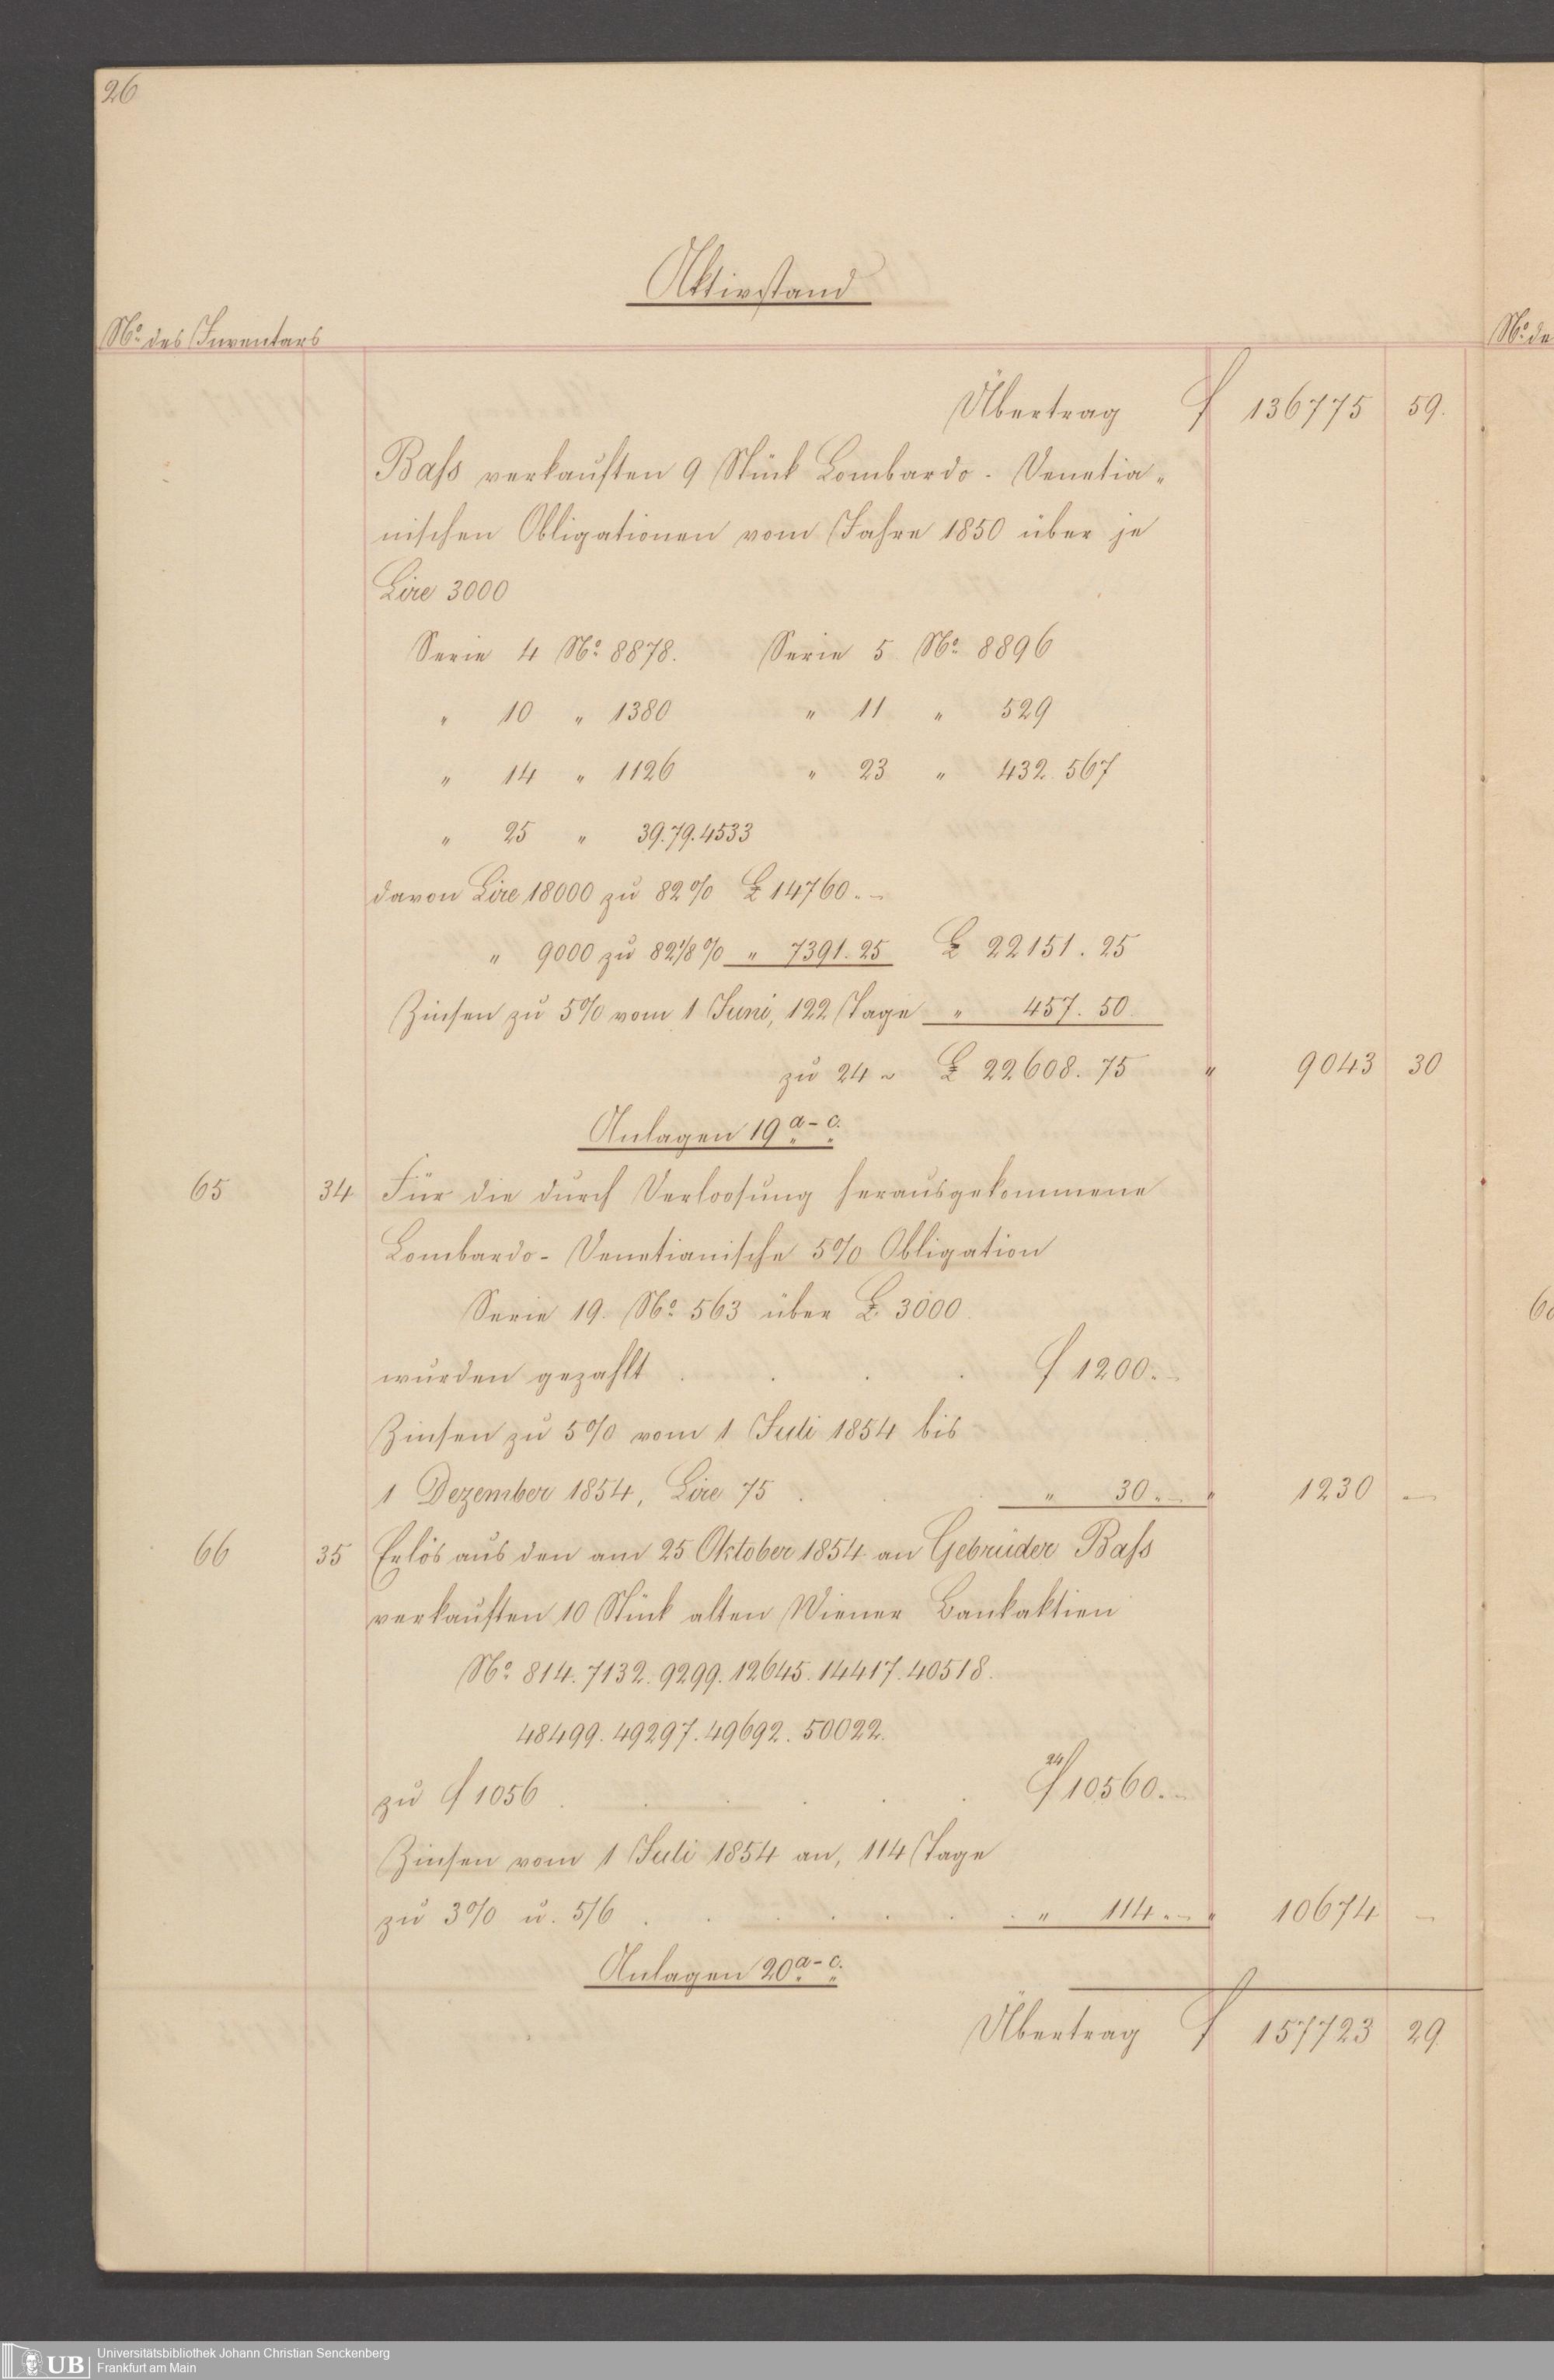 26
Aktivstand
No. des Inventars
No. de
Übertrag f 136775 59.
Bass verkauften 9 Stück Lombardo-Venetia„
nischen Obligationen vom Jahre 1850 über je
Lire 3000
Serie 4 No. 8878. Serie 5 No. 8896
" 10 " 1380 " 11 " 529
" 14 " 1126 " 23 " 432. 567
" 25 " 39. 79. 4533
davon Lire 18000 zu 82% £ 14760.–
" 9000 zu 82 1/8% " 7391. 25 £ 22151. 25
Zinsen zu 5% vom 1 Juni, 122 Tage " 457. 50
zu 24 ~ £ 22608. 75 " 9043 30
Anlagen 19 a–c.
65 34 Für die durch Verloosung herausgekommene
Lombardo-Venetianische 5% Obligation
Serie 19. No. 563 über £ 3000.
wurden gezahlt . . . . f 1200.–
Zinsen zu 5% vom 1 Juli 1854 bis
1 Dezember 1854, Lire 75 . . . " 30.– " 1230 –
66 35 Erlös aus den am 25 Oktober 1854 an Gebrüder Bass
verkauften 10 Stück alten Wiener Bankaktien
No. 814. 7132. 9299. 12645. 14417. 40518.
48499. 49297. 49692. 50022.
zu f 1056 . . . . . . 24/f 10560.–
Zinsen vom 1 Juli 1854 an, 114 Tage
zu 3% u. 5/6 . . . . . . " 114.– " 10674 –
Anlagen 20 a–c.
Übertrag f 157723 29.
UB
Universitätsbibliothek Johann Christian Senckenberg
Frankfurt am Main